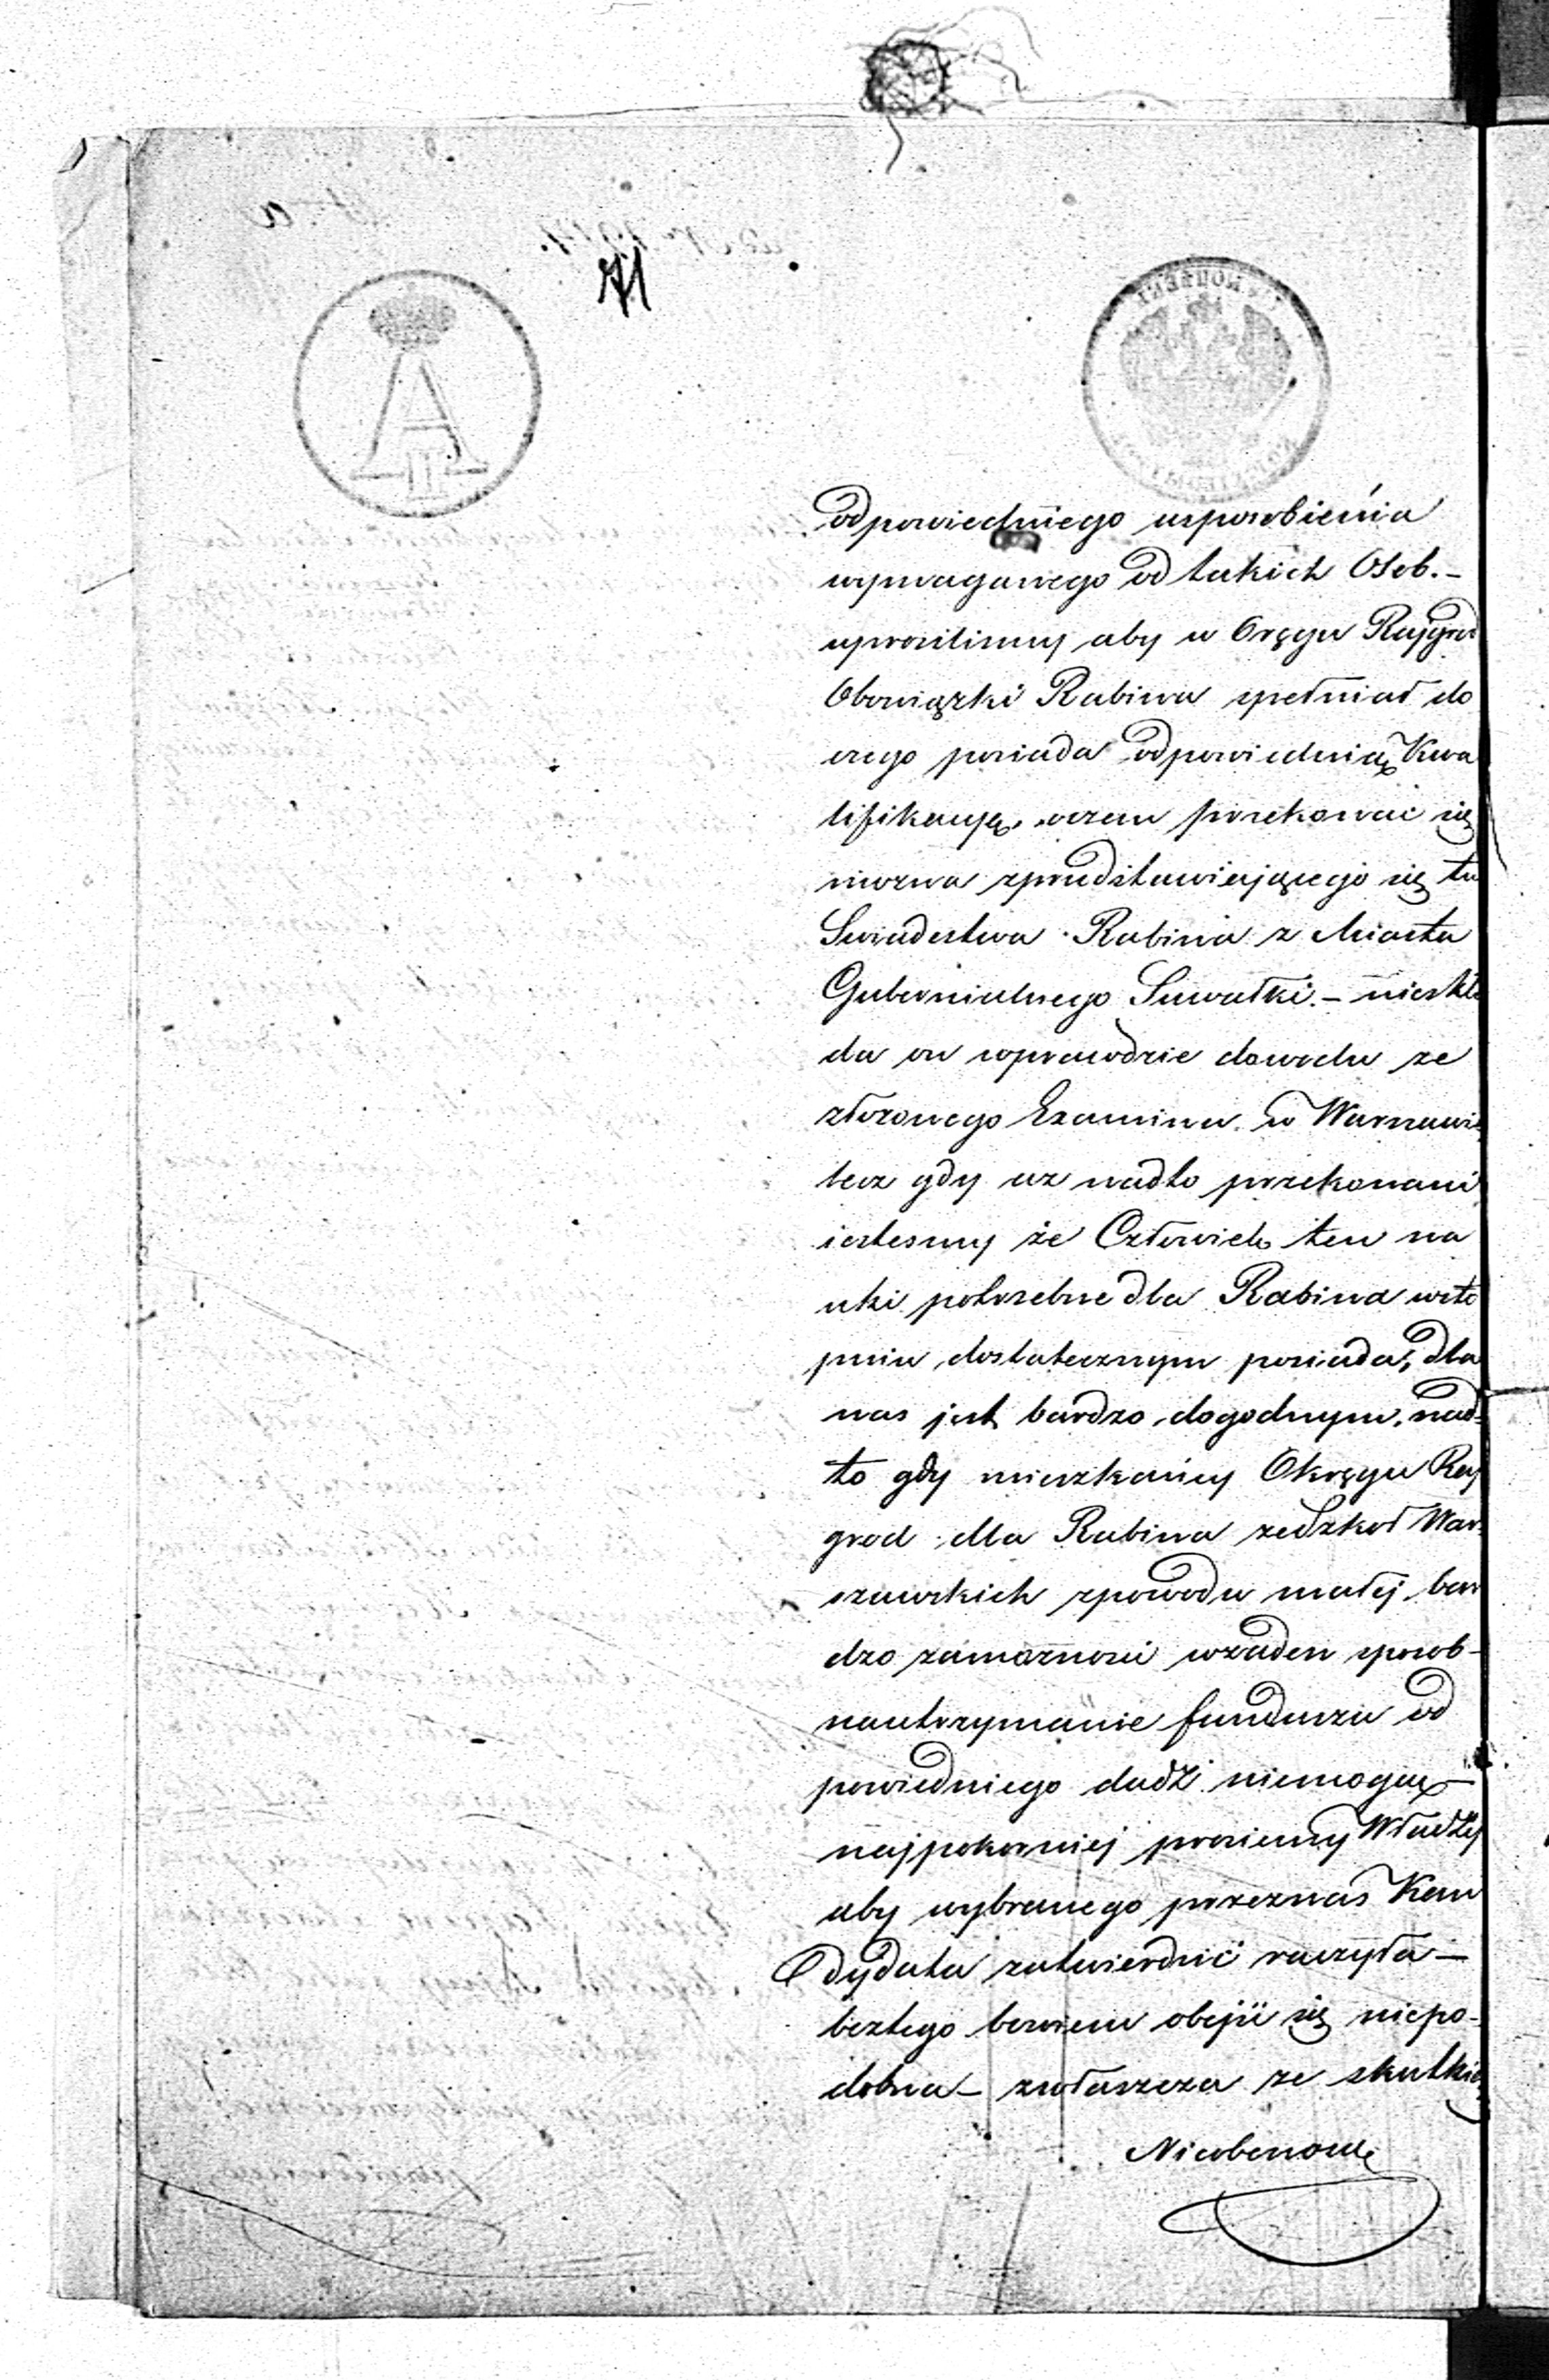 71
odpowiedniego usposobienia
wymaganego od takich Osob.–
uprosilismy aby w Oręgu Rajgrod
Obowiązki Rabina spełniał do
czego posiada odpowiednią Kwa
lifikacyę, oczem przekonać się
mozna zprzedstawiającego się tu
Swiadectwa Rabina z Miasta
Gubernialnego Suwałki.– nieskła
da on wprawdzie dowodu ze
złozonego Examinu w Warszawie
lecz gdy az nadto przekonani
iestesmy że Człowiek ten na
uki potrzebne dla Rabina wsto
pniu dostatecznym posiada, dla
nas jest bardzo dogodnym, nad-
to gdy mieszkańcy Okręgu Raj
grod dla Rabina ze Szkoł War
szawskich zpowodu małej bar
dzo zamoznosci wżaden sposob–
nautrzymanie funduszu od
powiedniego dadź niemogą–
najpokorniej prosiemy Władzy
aby wybranego przeznas Kan
dydata zatwierdzić raczyła–
beztego bowiem obejść się niepo-
dobna– zwłaszcza ze skutkiem